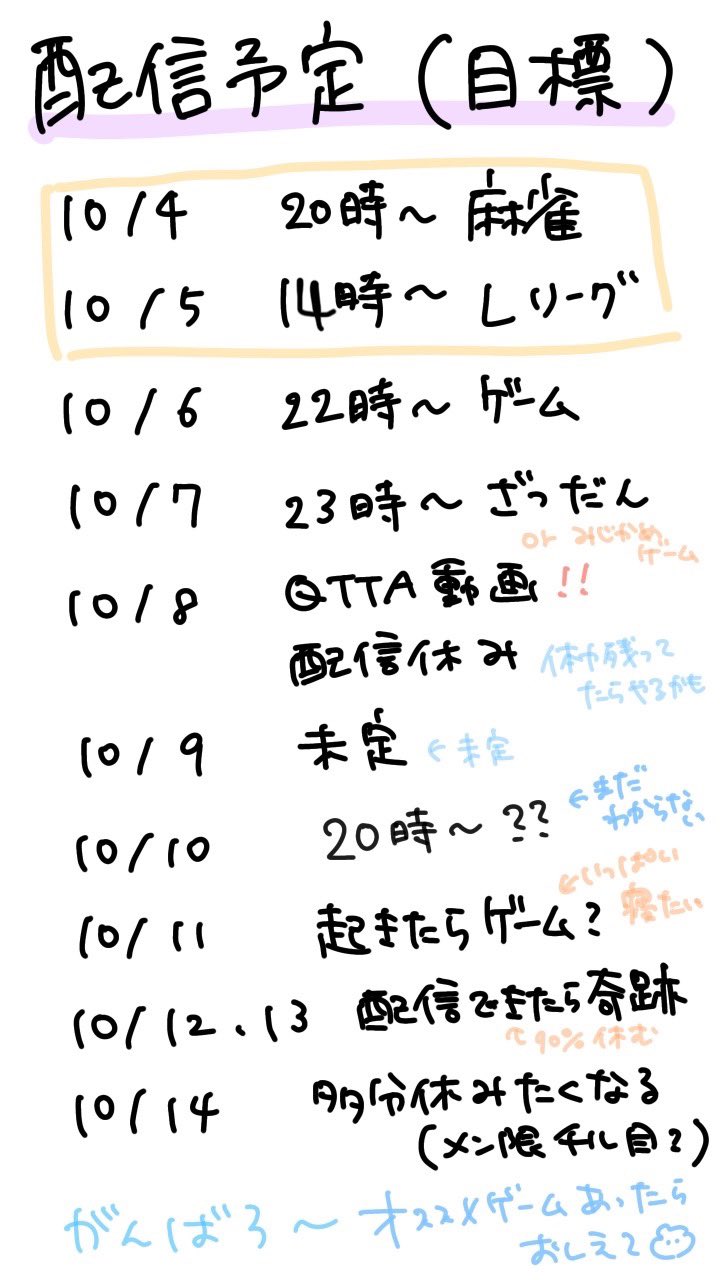 配信予定（目標）
10/4 20時～ 麻雀
10/5 14時～ Lリーグ
10/6 22時～ ゲーム
10/7 23時～ ざつだん
or みじかめ
ゲーム
10/8 QTTA動画!!
配信休み 体力残って
たらやるかも
10/9 未定 ←未定
10/10 20時～ ?? ←まだ
わからない
10/11 起きたらゲーム? ←いっぱい
寝たい
10/12、13 配信できたら奇跡
↖90%休む
10/14 多分休みたくなる
(メン限チル目?)
がんばろ～ オススメゲームあったら
おしえて